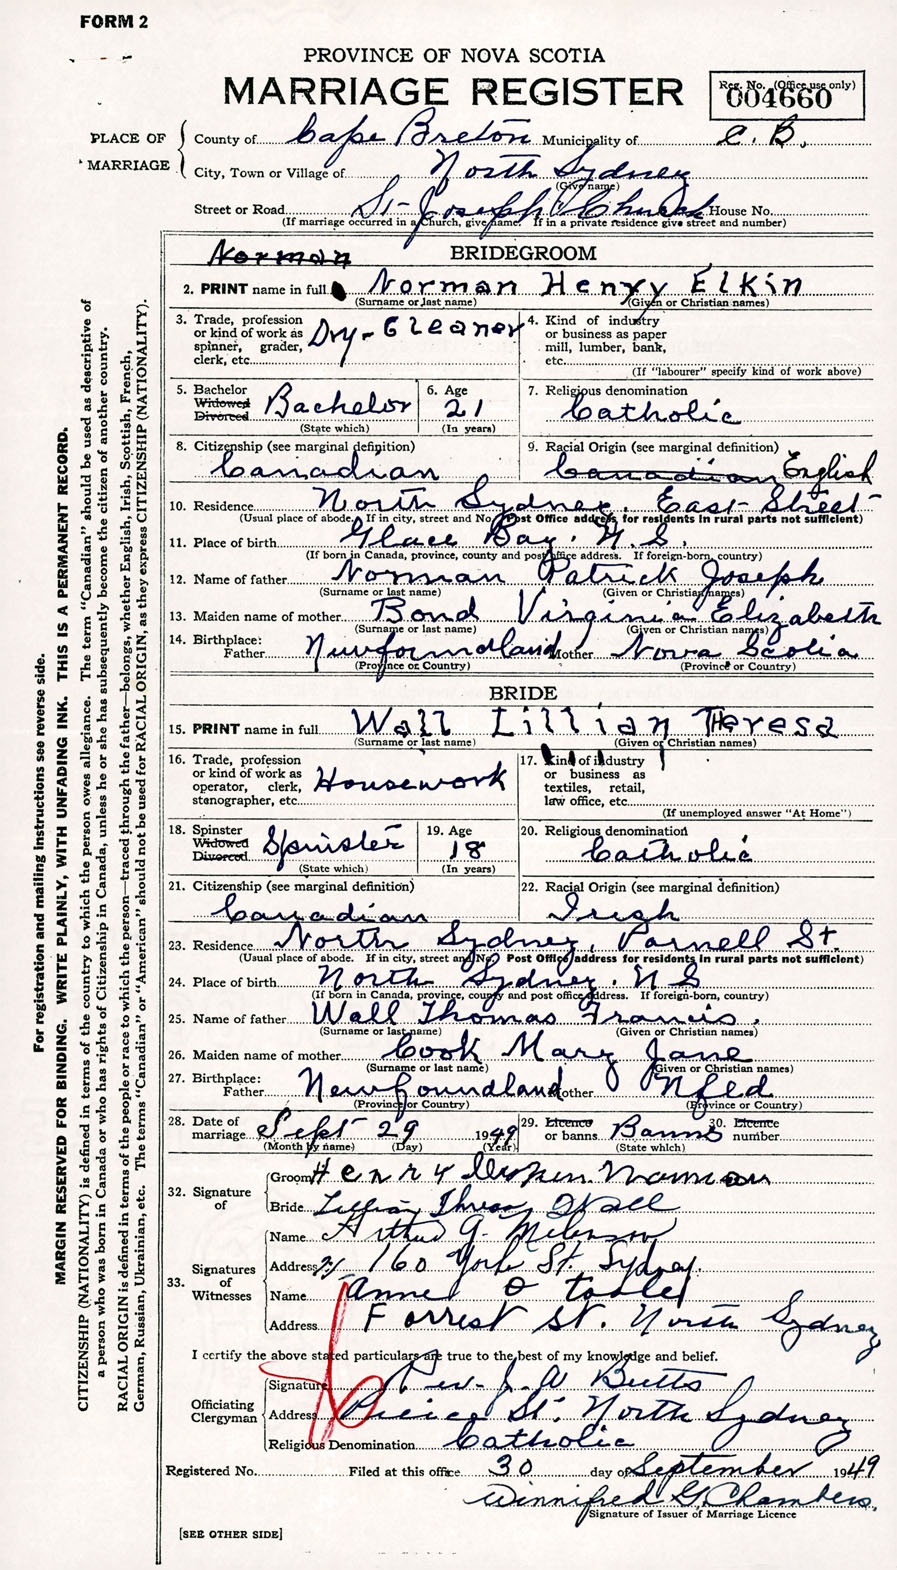 FORM 2
PROVINCE OF NOVA SCOTIA
MARRIAGE REGISTER
Reg. No. (Office use only)
004660
PLACE OF MARRIAGE
County of Cape Breton Municipality of C. B.
City, Town or Village of North Sydney
(Give name)
Street or Road St- Joseph's Church House No.
(If marriage occurred in a Church, give name. If in a private residence give street and number)
Norman
BRIDEGROOM
2. PRINT name in full Norman Henry Elkin
(Surname or last name) (Given or Christian names)
3. Trade, profession or kind of work as spinner, grader, clerk, etc. Dry-Cleaner
4. Kind of industry or business as paper mill, lumber, bank, etc.
(If "labourer" specify kind of work above)
5. Bachelor Widowed Divorced Bachelor
(State which)
6. Age 21
(In years)
7. Religious denomination
Catholic
8. Citizenship (see marginal definition)
Canadian
9. Racial Origin (see marginal definition)
Canadian English
10. Residence North Sydney. East Street
(Usual place of abode. If in city, street and No. Post Office address for residents in rural parts not sufficient)
11. Place of birth Glace Bay. N.S.
(If born in Canada, province, county and post office address. If foreign-born, country)
12. Name of father Norman Patrick Joseph
(Surname or last name) (Given or Christian names)
13. Maiden name of mother Bond Virginia Elizabeth
(Surname or last name) (Given or Christian names)
14. Birthplace: Father Newfoundland Mother Nova Scotia
(Province or Country) (Province or Country)
BRIDE
15. PRINT name in full Wall Lillian Theresa
(Surname or last name) (Given or Christian names)
16. Trade, profession or kind of work as operator, clerk, stenographer, etc. Housework
17. Kind of industry or business as textiles, retail, law office, etc.
(If unemployed answer "At Home")
18. Spinster Widowed Divorced Spinister
(State which)
19. Age 18
(In years)
20. Religious denomination
Catholic
21. Citizenship (see marginal definition)
Canadian
22. Racial Origin (see marginal definition)
Irish
23. Residence North Sydney, Parnell St.
(Usual place of abode. If in city, street and No. Post Office address for residents in rural parts not sufficient)
24. Place of birth North Sydney. N S
(If born in Canada, province, county and post office address. If foreign-born, country)
25. Name of father Wall Thomas Francis.
(Surname or last name) (Given or Christian names)
26. Maiden name of mother Cook Mary Jane
(Surname or last name) (Given or Christian names)
27. Birthplace: Father Newfoundland Mother Nfld
(Province or Country) (Province or Country)
28. Date of marriage Sept 29 1949
(Month by name) (Day) (Year)
29. Licence or banns Banns
(State which)
30. Licence number
32. Signature of
Groom Henry Norman
Bride Lillian Theresa Wall
33. Signatures of Witnesses
Name Arthur G.
Address 160 York St. Sydney.
Name Anne O Tooled
Address Forrest St. North Sydney
I certify the above stated particulars are true to the best of my knowledge and belief.
Officiating Clergyman
Signature Rev. J. A Butts
Address Pierce St. North Sydney
Religious Denomination Catholic
Registered No. Filed at this office 30 day of September 1949
Winnifred G. Chambers.
Signature of Issuer of Marriage Licence
[SEE OTHER SIDE]
For registration and mailing instructions see reverse side.
MARGIN RESERVED FOR BINDING. WRITE PLAINLY, WITH UNFADING INK. THIS IS A PERMANENT RECORD.
CITIZENSHIP (NATIONALITY) is defined in terms of the country to which the person owes allegiance. The term "Canadian" should be used as descriptive of
a person who was born in Canada or who has rights of Citizenship in Canada, unless he or she has subsequently become the citizen of another country.
RACIAL ORIGIN is defined in terms of the people or race to which the person—traced through the father—belongs, whether English, Irish, Scottish, French,
German, Russian, Ukrainian, etc. The terms "Canadian" or "American" should not be used for RACIAL ORIGIN, as they express CITIZENSHIP (NATIONALITY).